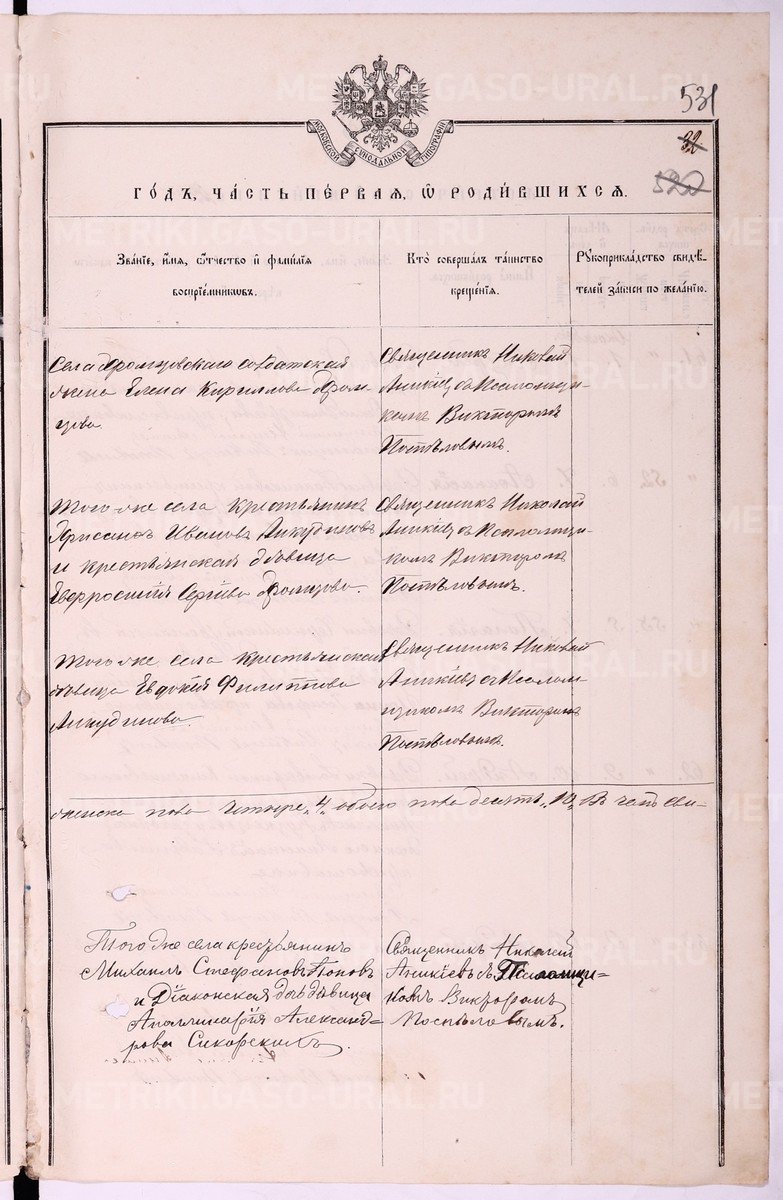 531
32
522
МОСКОВСКОЙ СѴНОДАЛЬНОЙ ТИПОГРАФІИ
ГО́ДЪ, ЧА́СТЬ ПЕ́РВАЯ, Ѿ РОДИ́ВШИХСѦ.
Зва́нїе, и҆́мѧ, ѻ҆́тчество и҆ фами́лїѧ
воспрїе́мниковъ.
Кто̀ соверша́лъ та́инство
креще́нїѧ.
Рꙋкоприкла́дство свидѣ́-
телей за́писи по жела́нїю.
Села солдатская
жена Елена Кириллова
Священникъ Николай
Аникіевъ съ Псаломщи-
комъ Викторомъ
Поспѣловымъ.
Того же села крестьянинъ
Хрисанѳъ Ивановъ Анкудиновъ
и крестьянская дѣвица
Евфросинія Сергіева
Священникъ Николай
Аникіевъ съ Псаломщи-
комъ Викторомъ
Поспѣловымъ.
Того же села крестьянская
дѣвица Евдокія Филиппова
Анкудинова.
Священникъ Николай
Аникіевъ съ Псалом
щикомъ Викторомъ
Поспѣловымъ.
женска пола четыре „4„ обоего пола десять „10„ В чемъ сви-
Того же села крестьянинъ
Михаилъ Стефановъ Поповъ
и Діаконская дочь дѣвица
Аполлинарія Александ-
рова
Священникъ Николай
Аникіевъ съ Псаломщи-
комъ Викторомъ
Поспѣловымъ.
METRIKI.GASO-URAL.RU